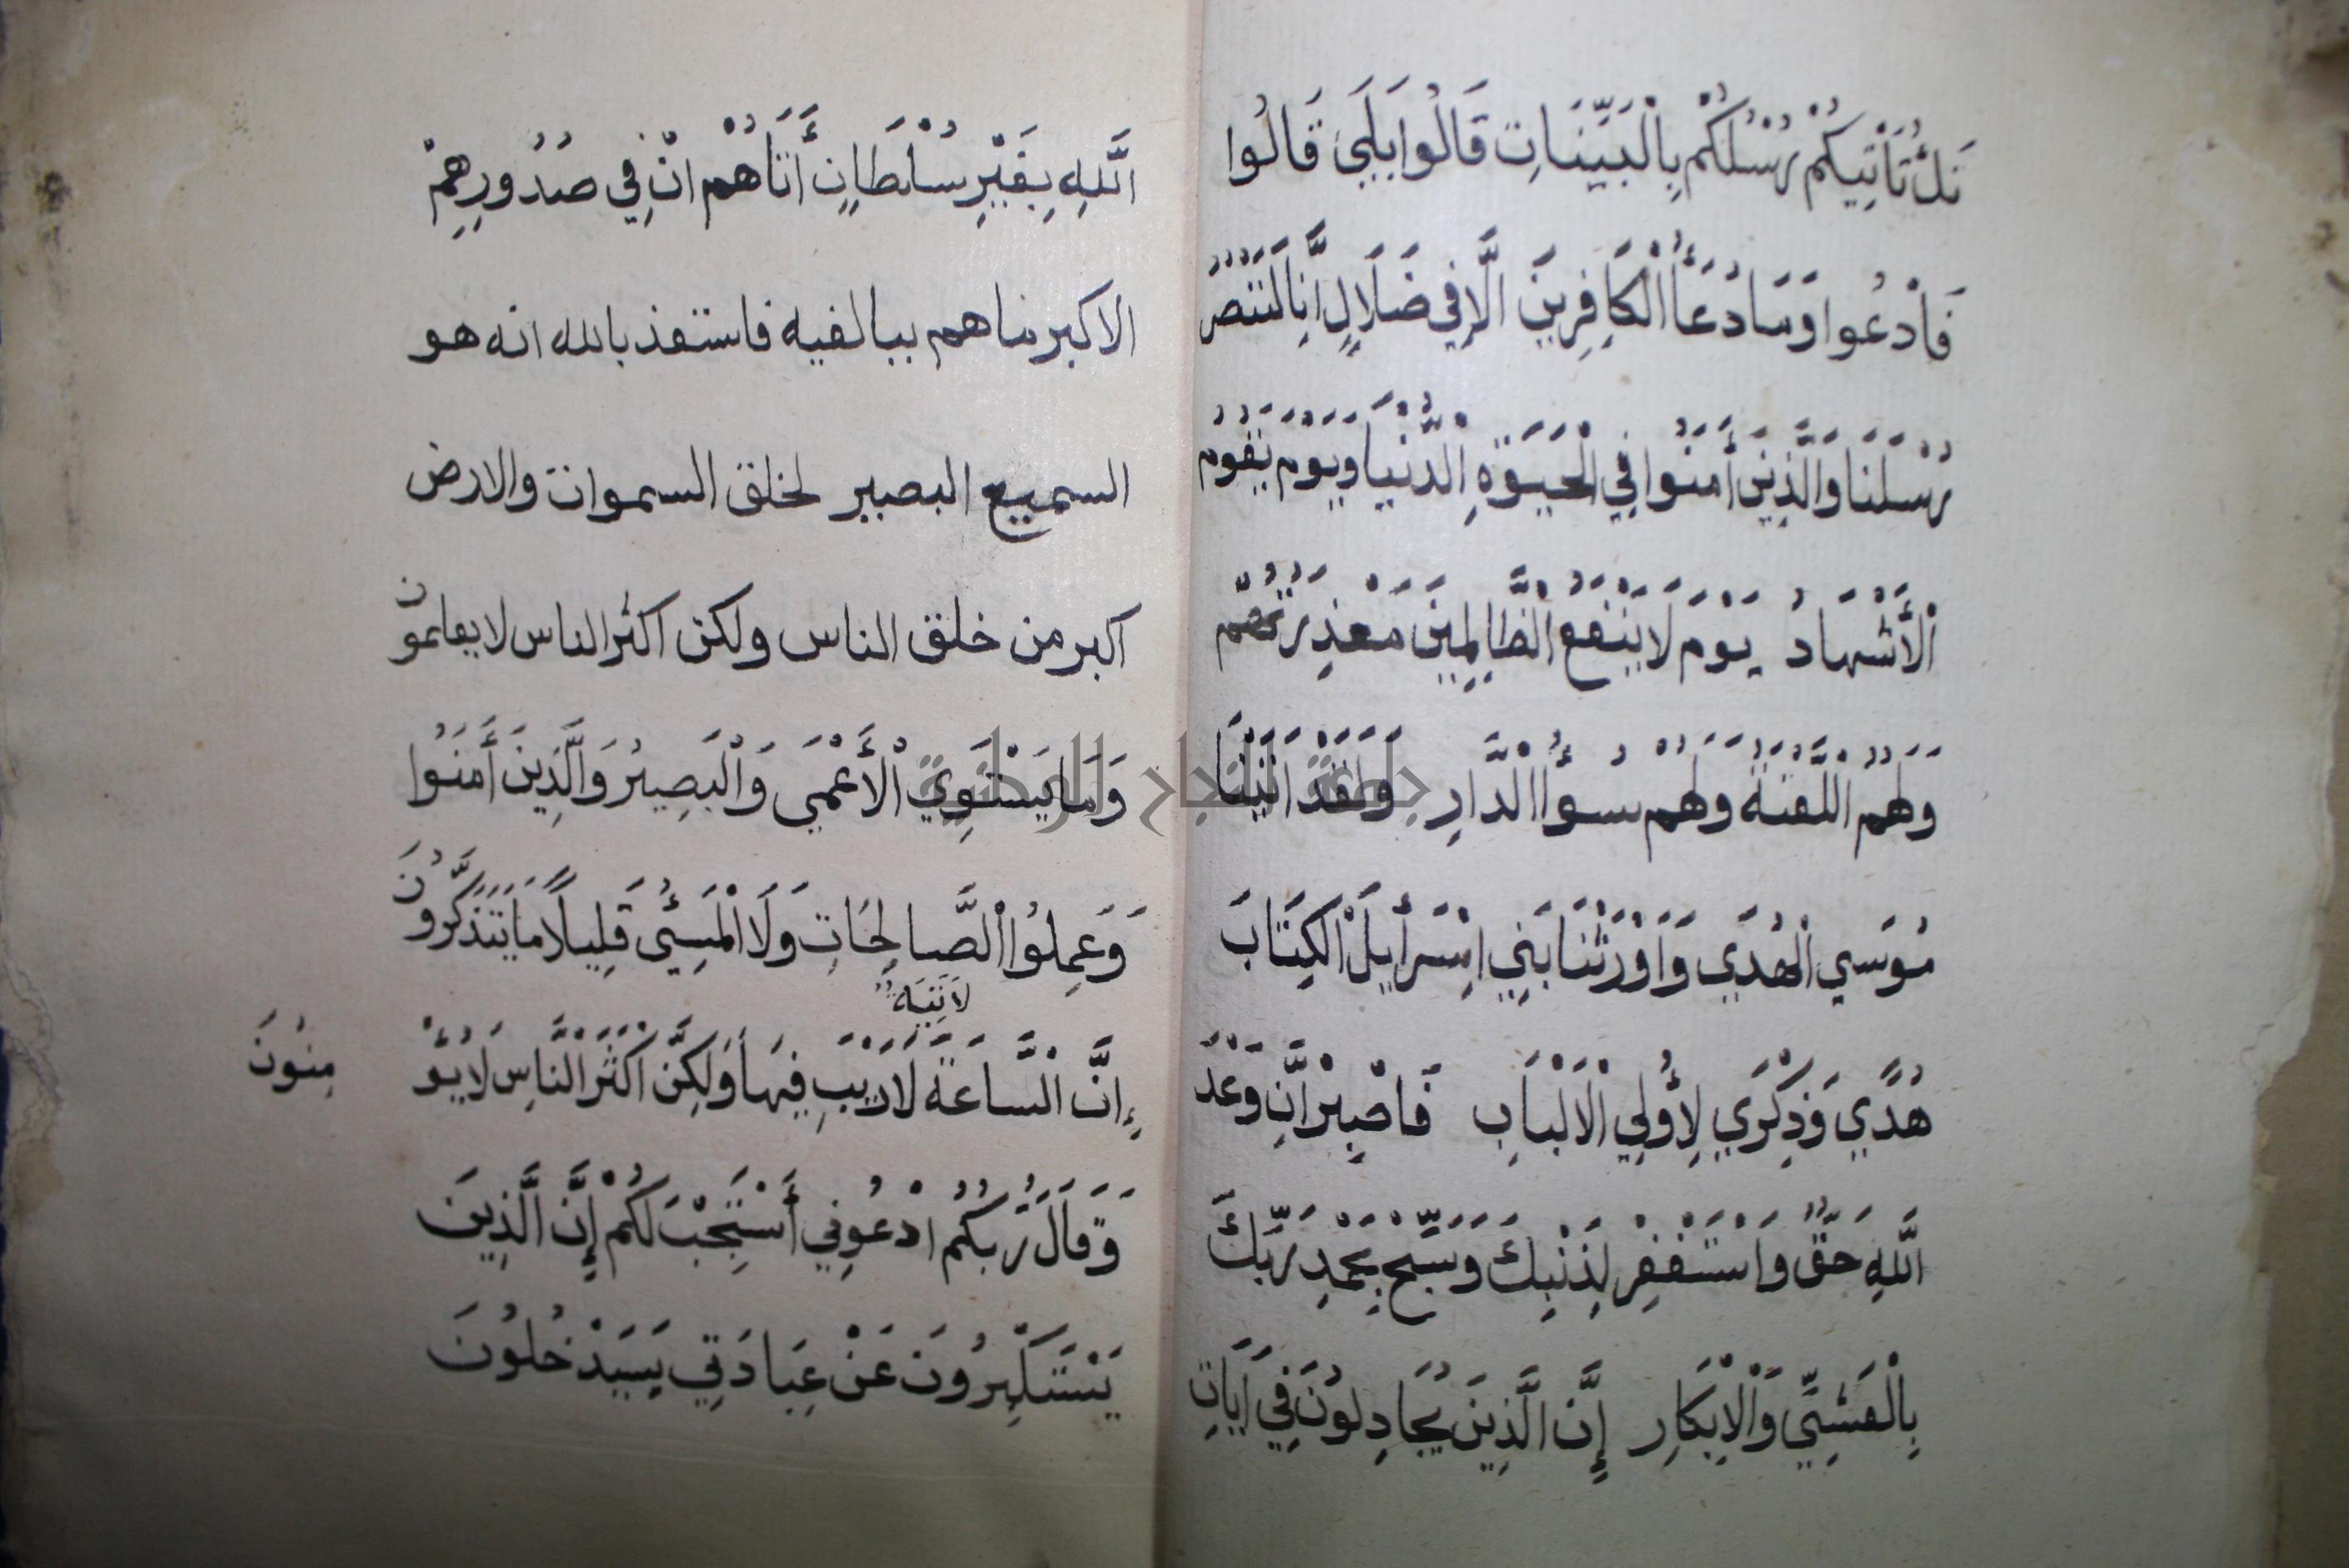 تَكُ تَأْتِيكُمْ رُسُلُكُمْ بِالْبَيِّنَاتِ قَالُوا بَلَىٰ قَالُوا
فَادْعُوا وَمَا دُعَٰؤُا الْكَافِرِينَ اِلَّا فِي ضَلَالٍ اِنَّا لَنَنْصُرُ
رُسُلَنَا وَالَّذِينَ أَمَنُوا فِي الْحَيَوٰةِ الدُّنْيَا وَيَوْمَ يَقُومُ
الْأَشْهَادُ يَوْمَ لَا يَنْفَعُ الظَّالِمِينَ مَعْذِرَتُهُمْ
وَلَهُمُ اللَّعْنَةُ وَلَهُمْ سُوأُ الْدَّارِ وَلَقَدْ اَتَيْنَا
مُوسَي الْهُدَي وَاَوْرَثْنَا بَنِي اِسْرَأيِلَ الْكِتَابَ
هُدًي وَذِكْرَي لِأُولِي الْاَلْبَابِ فَاصْبِرْ اِنَّ وَعْدَ
اَللهِ حَقٌّ وَاسْتَغْفِرْ لِذَنْبِكَ وَسَبِّحْ بِحَمْدِ رَبِّكَ
بِالْعَشِيِّ وَالْاِبْكَارِ إِنَّ الَّذِينَ يُجَادِلُونَ فِي اَيَاتِ
اَللهِ بِغَيْرِ سُلْطَانٍ أَتَاهُمْ اِنْ فِي صُدُورِهِمْ
الا كبر ماهم ببالغيه فاستعذ بالله انه هو
السميع البصير لخلق السموات والارض
اكبر من خلق الناس ولكن اكثر الناس لا يعلمون
وَمَا يَسْتَوِي الْأَعْمَي وَالْبَصِيرُ وَالَّذِينَ أَمَنُوا
وَعَمِلُوا الصَّالِحَاتِ وَلَا الْمُسِيئُ قَلِيلًا مَا تَتَذَكَّرُونَ
لَاَتِيَةٌ
إِنَّ الْسَّاعَةَ لَا رَيْبَ فِيهَا وَلَكِنَّ اَكْثَرَ النَّاسِ لَا يُؤْ مِنُونَ
وَقَالَ رَبُّكُمُ ادْعُونِي أَسْتَجِبْ لَكُمْ إِنَّ الَّذِينَ
يَسْتَكْبِرُونَ عَنْ عِبَادَتِي سَيَدْخُلُونَ
جامعة النجاح الوطنية